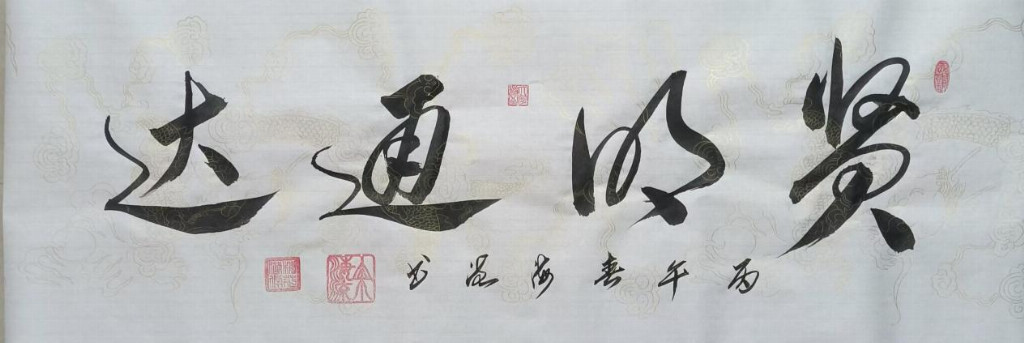 贤明通达
丙午春海岩书